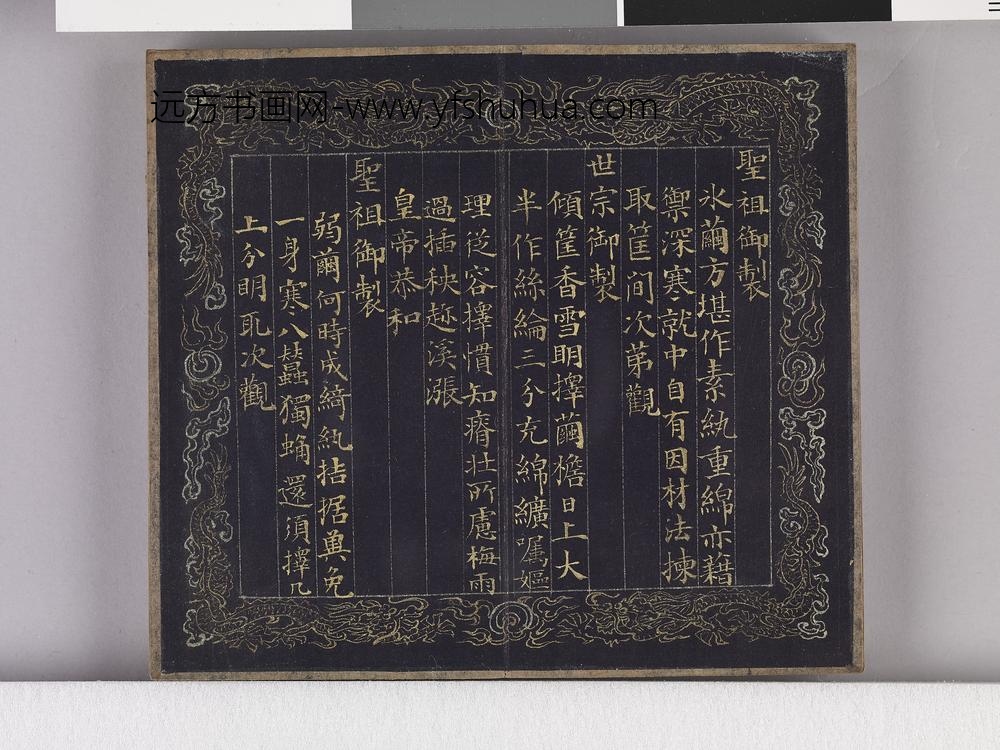 远方书画网-www.yfshuhua.com
聖祖御製
氷繭方堪作素紈重綿亦藉
禦深寒就中自有因材法揀
取筐間次苐觀
世宗御製
傾筐香雪明擇繭檐日上大
半作絲綸三分充綿纊嘱嫗
理従容擇慣知瘠壮所慮梅雨
過插秧趂溪漲
皇帝恭和
聖祖御製
弱繭何時成綺紈拮据奠免
一身寒八蠶獨蛹還須擇几
上分明眊次觀